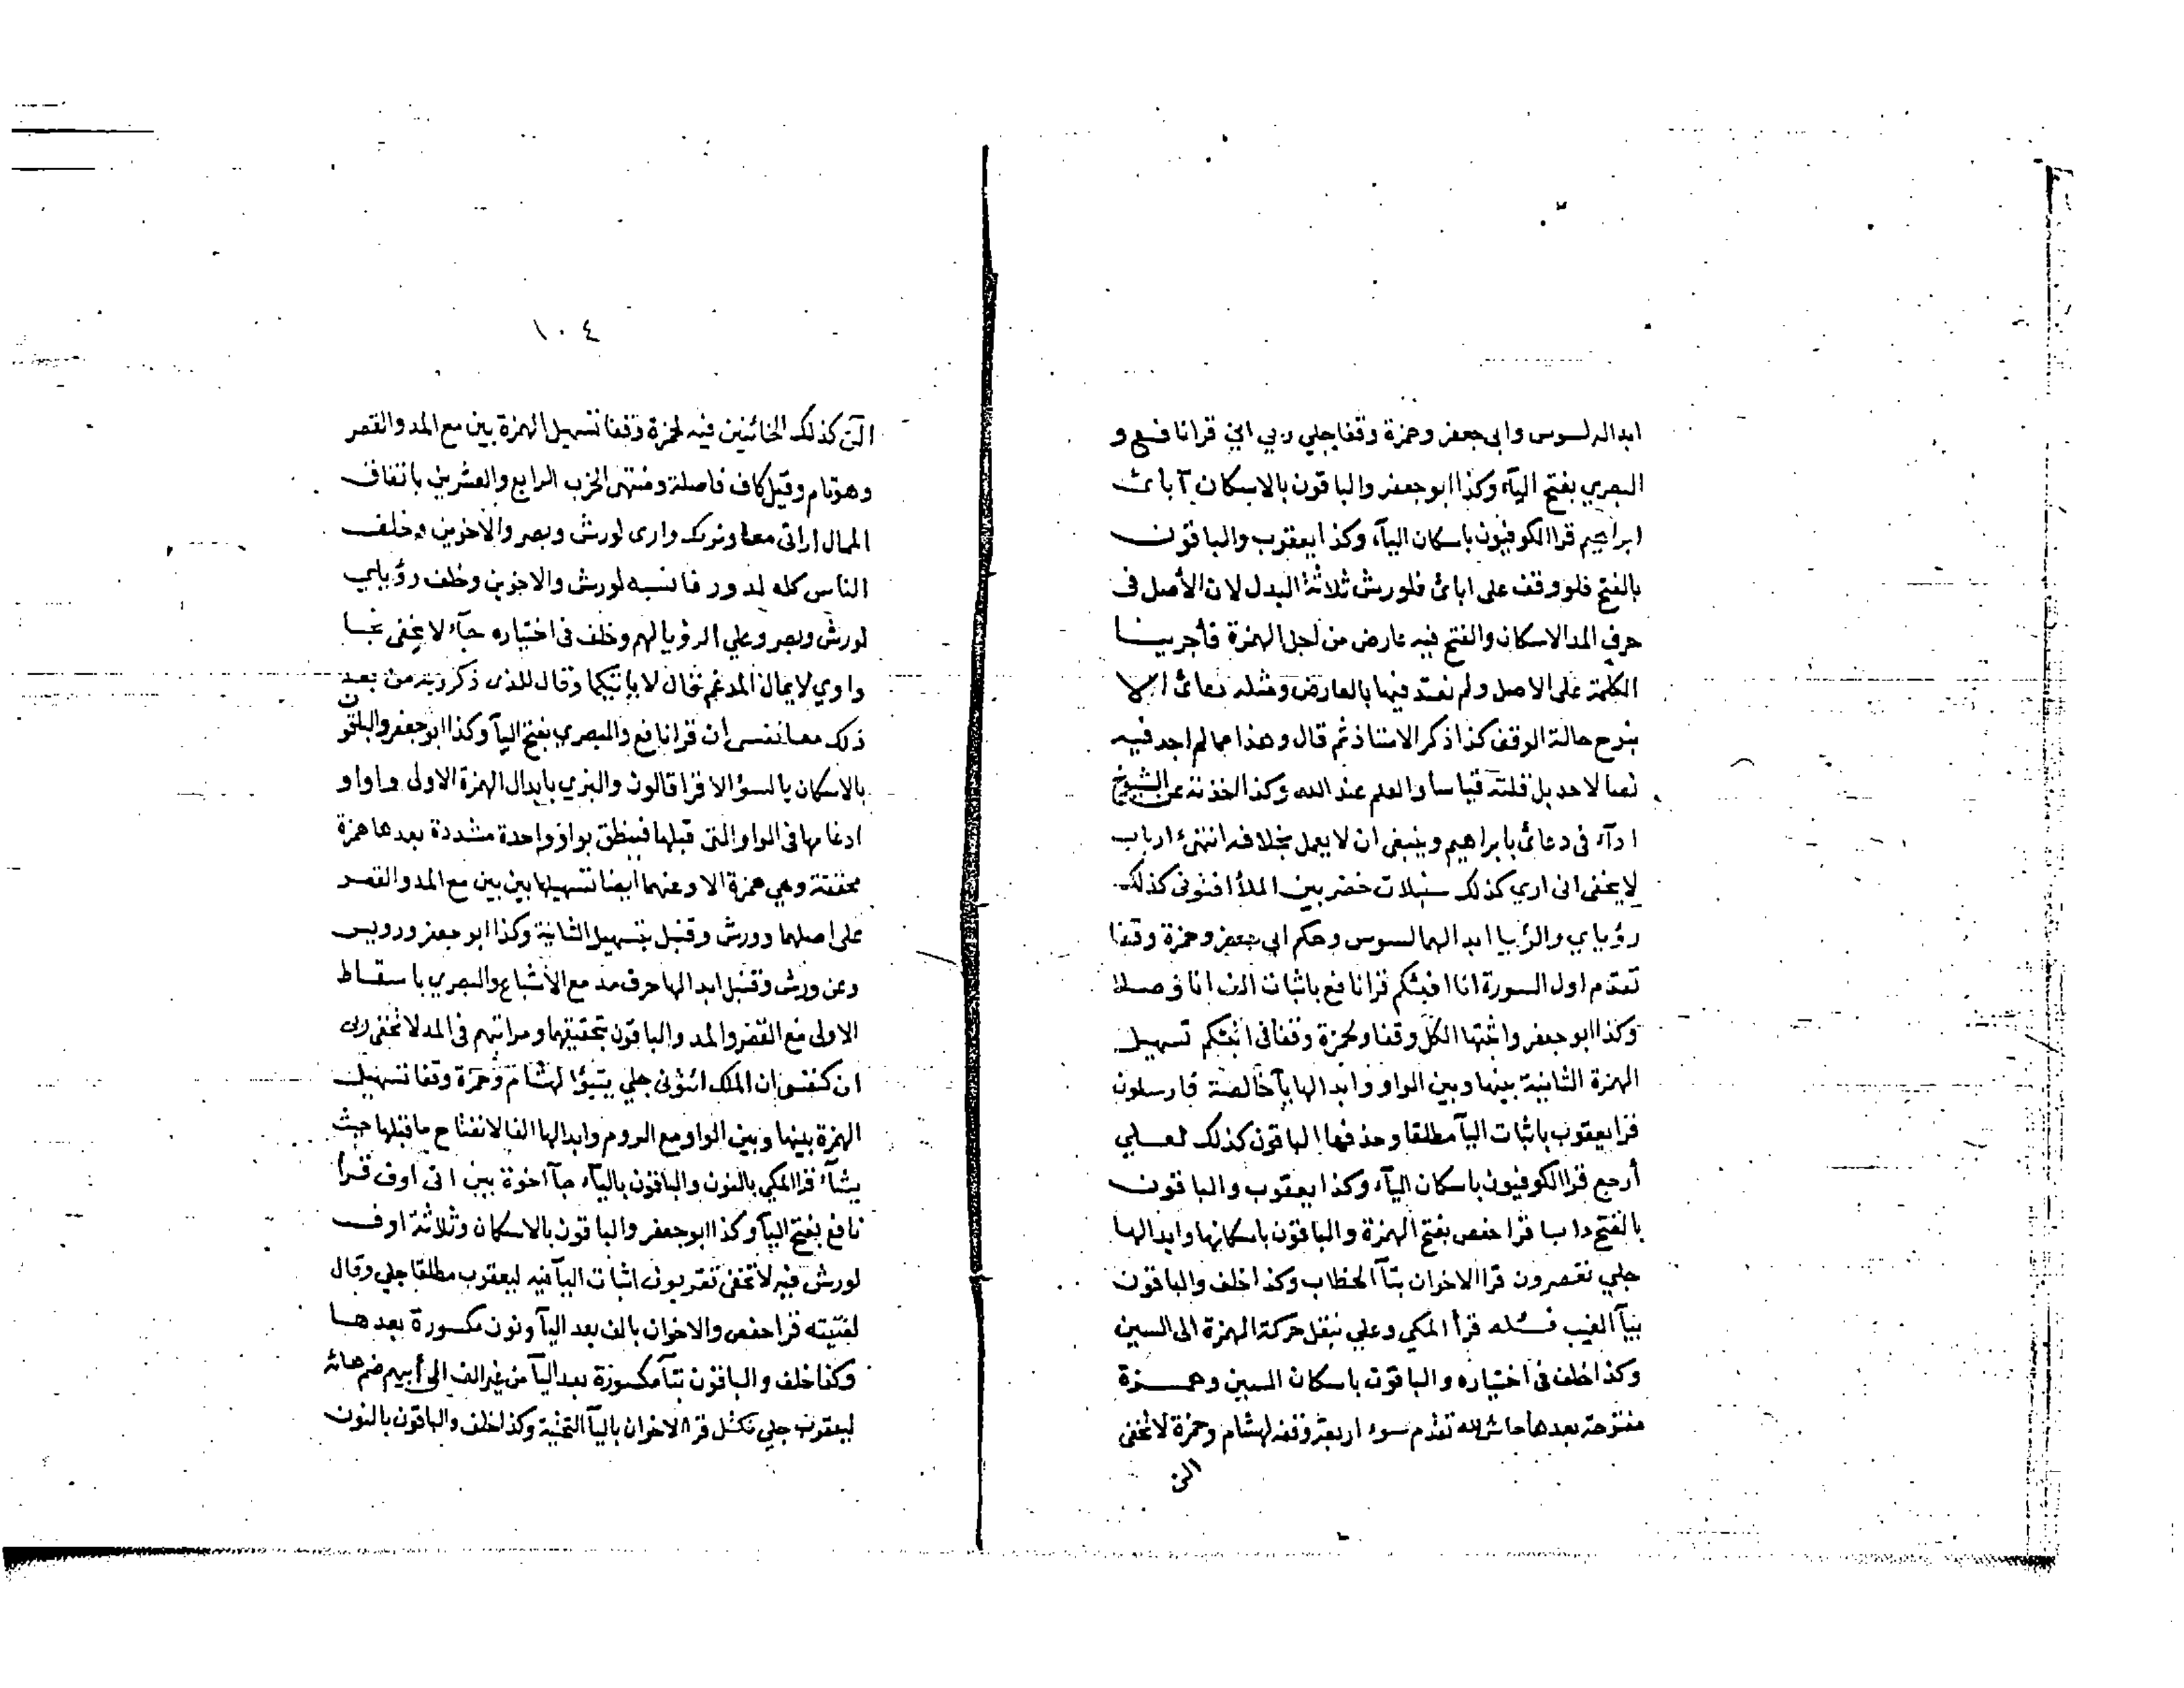 ابداله لسوس وابى جعفر وحمزة وقفا جلي ربي اني قرا نافع و
البصري بفتح اليآء وكذا ابو جعفر والباقون بالاسكان آبائ
ابراهيم قرا الكوفيون باسكان اليآء وكذا يعقوب والباقون
بالفتح فلو وقف على ابائ فلورش ثلاثة البدل لان الأصل فى
حرف المد الاسكان والفتح فيه عارض من اجل الهمزة فأجرينا
الكلمة على الاصل ولم نعتد فيها بالعارض ومثله دعائ الا
بنوح حالة الوقف كذا ذكر الاستاذ ثم قال وهذا مما لم اجد فيه
نصا لاحد بل قلته قياسا والعلم عند الله وكذا اخذته عن الشيوخ
ادآء فى دعائ بابراهيم وينبغى ان لا يعمل بخلافه انتهىء ارباب
لا يخفى انى اري كذلك سنبلات خضر بين الملأ افتونى كذلك
رؤياي والرؤيا ابدالهما لسوس وحكم ابى جعفر وحمزة وقفا
تقدم اول السورة انا انبئكم قرا نافع باثبات الف انا وصلا
وكذا ابو جعفر واثبتها الكل وقفا ولحمزة وقفا فى انبئكم تسهيل
الهمزة الثانية بينها وبين الواو وابدالها يآ خالصة فارسلون
قرا يعقوب باثبات اليآ مطلقا وحذفها الباقون كذلك لعلي
أرجع قرا الكوفيون باسكان اليآء وكذا يعقوب والباقون
بالفتح دابا قرا حفص بفتح الهمزة والباقون باسكانها وابدالها
جلي تعصرون قرا الاخوان بتآ الخطاب وكذا خلف والباقون
بيآ الغيب فسئله قرأ المكي وعلي بنقل حركة الهمزة الى السين
وكذا خلف فى اختياره والباقون باسكان السين وهمزة
مفتوحة بعدها حاش لله تقدم سوء اربعة وقفه لهشام وحمزة لا تخفى
الن
١٠٤
الن كذلك الخائنين فيه لحمزة وقفا تسهيل الهمزة بين مع المد والقصر
وهو تام وقيل كاف فاصلة ومنتهى الحزب الرابع والعشرين باتفاف
الممال ارانى معا ونريك وارى لورش وبصر والاخوين وخلف
الناس كله لدور فانسيه لورش والاخوين وخلف رؤيايي
لورش وبصر وعلي الرؤيا لهم وخلف فى اختياره جآء لا يخفى نجا
واوي لا يمال المدغم قال لا ياتيكما وقال للذى ذكر ربه من بعد
ذلك معا نفسى ان قرا نافع والبصري بفتح اليآ وكذا ابو جعفر والباقون
بالاسكان بالسؤ الا قرا قالون والبزي بابدال الهمزة الاولى واوا و
ادغامها فى الواو التى قبلها فينطق بواو واحدة مشددة بعدها همزة
محققة وهي همزة الا وعنهما أيضا تسهيلها بين بين مع المد والقصر
على اصلهما وورش وقنبل بتسهيل الثانية وكذا ابو جعفر ورويس
وعن ورش وقنبل ابدالها حرف مد مع الاشباع والبصري باسقاط
الاولى مع القصر والمد والباقون بتحقيقهما ومراتبهم فى المد لا تخفى ربى
ان كنفسى ان الملك ائتونى جلي يتبوؤا لهشام وحمزة وقفا تسهيل
الهمزة بينها وبين الواو مع الروم وابدالها الفا لانفتاح ماقبلها حيث
يشآء قرا المكي بالنون والباقون باليآء جآ اخوة بين انى اوف قرا
نافع بفتح اليآ وكذا ابو جعفر والباقون بالاسكان وثلاثة اوف
لورش فيه لا تخفى تقربون اثبات اليآ فيه ليعقوب مطلقا جلي وقال
لفتيته قرا حفص والاخوان بالف بعد اليآ ونون مكسورة بعدها
وكذا خلف والباقون بتآ مكسورة بعد اليآ من غير الف الى أبيهم ضم هائه
ليعقوب جلي نكتل قرا الاخوان باليآ التحتية وكذا خلف والباقون بالنون